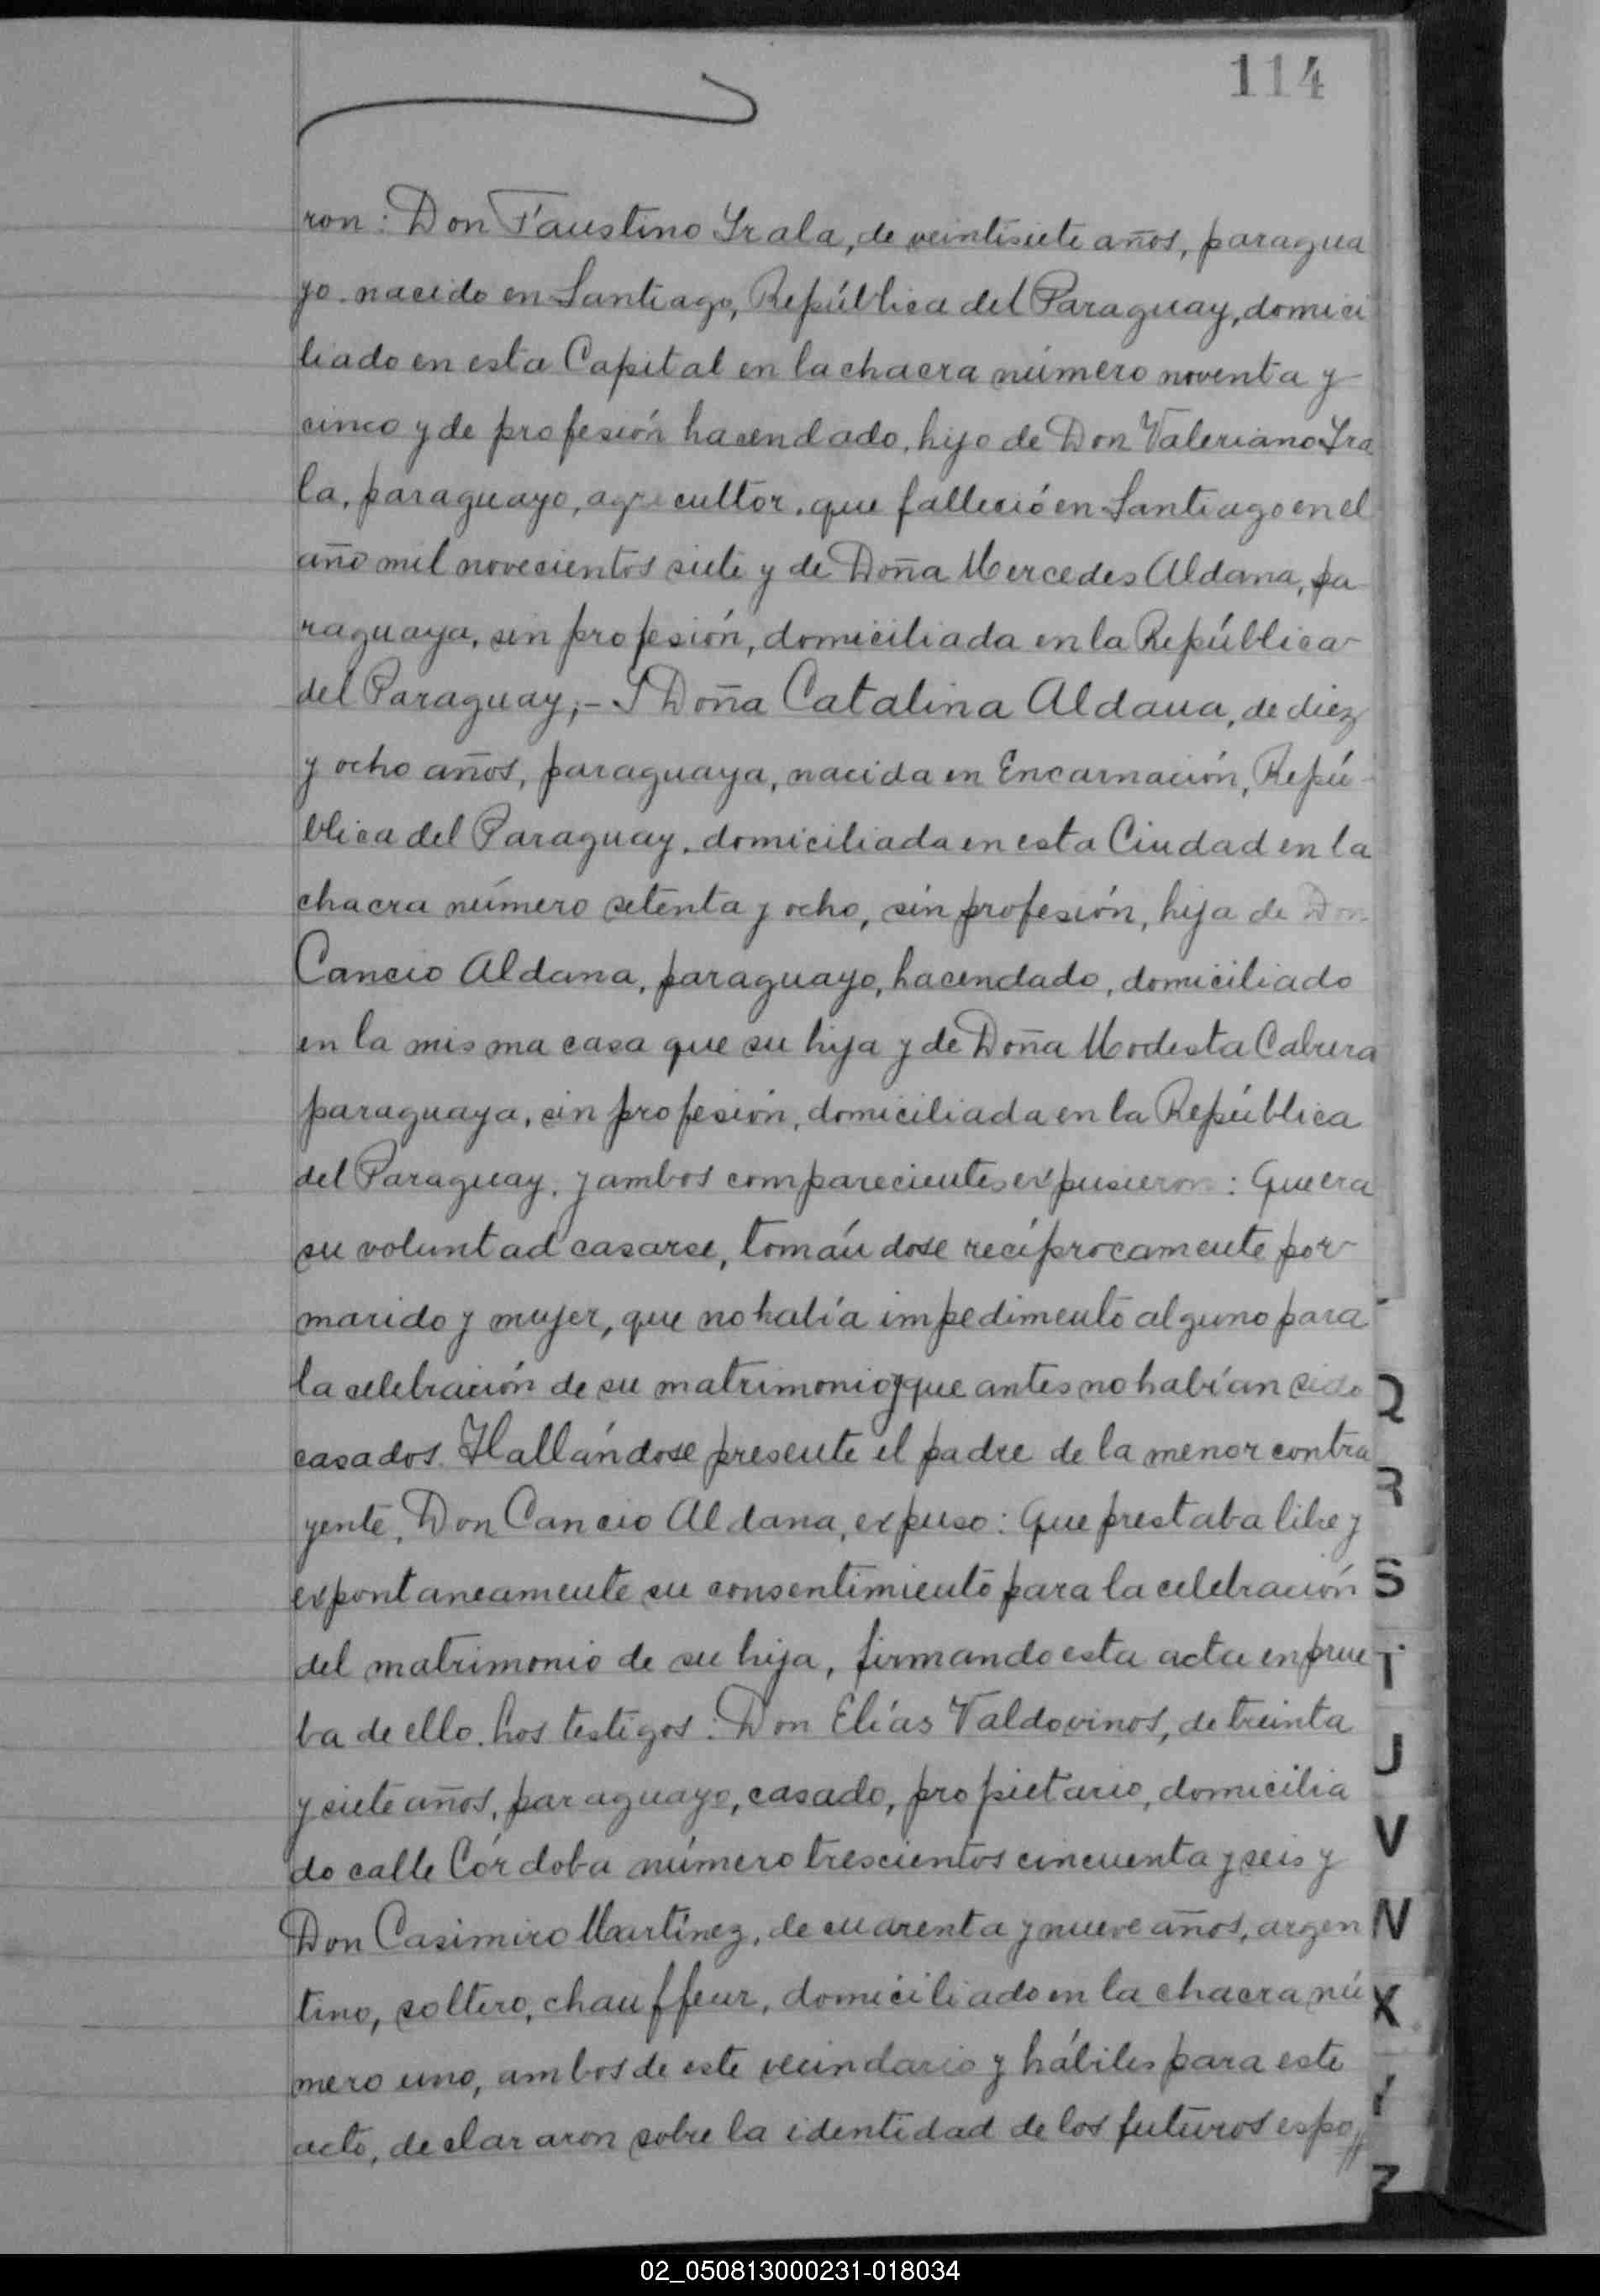 114
ron: Don Faustino Irala, de veintisiete años, paragua
yo. nacido en Santiago, República del Paraguay, domici
liado en esta Capital en la chacra número noventa y
cinco y de profesión hacendado, hijo de Don Valeriano Ira
la, paraguayo, agricultor, que falleció en Santiago en el
año mil novecientos siete y de Doña Mercedes Aldana, pa
raguaya, sin profesión, domiciliada en la República
del Paraguay;- I Doña Catalina Aldana, de diez
y ocho años, paraguaya, nacida en Encarnación, Repú-
blica del Paraguay, domiciliada en esta Ciudad en la
chacra número setenta y ocho, sin profesión, hija de Don
Cancio Aldana, paraguayo, hacendado, domiciliado
en la misma casa que su hija y de Doña Modesta Cabrera
paraguaya, sin profesión, domiciliada en la República
del Paraguay, y ambos comparecientes expusieron: Que era
su voluntad casarse, tomándose recíprocamente por
marido y mujer, que no había impedimento alguno para
la celebración de su matrimonio y que antes no habían sido
casados. Hallándose presente el padre de la menor contra
yente, Don Cancio Aldana, expuso: Que prestaba libre y
expontaneamente su consentimiento para la celebración
del matrimonio de su hija, firmando esta acta en prue
ba de ello. Los testigos: Don Elías Valdovinos, de treinta
y siete años, paraguayo, casado, propietario, domicilia
do calle Córdoba número trescientos cincuenta y seis y
Don Casimiro Martínez, de cuarenta y nueve años, argen
tino, soltero, chauffeur, domiciliado en la chacra nú
mero uno, ambos de este vecindario y hábiles para este
acto, declararon sobre la identidad de los futuros espo//
Q
R
S
T
U
V
N
X
Y
Z
02_050813000231-018034